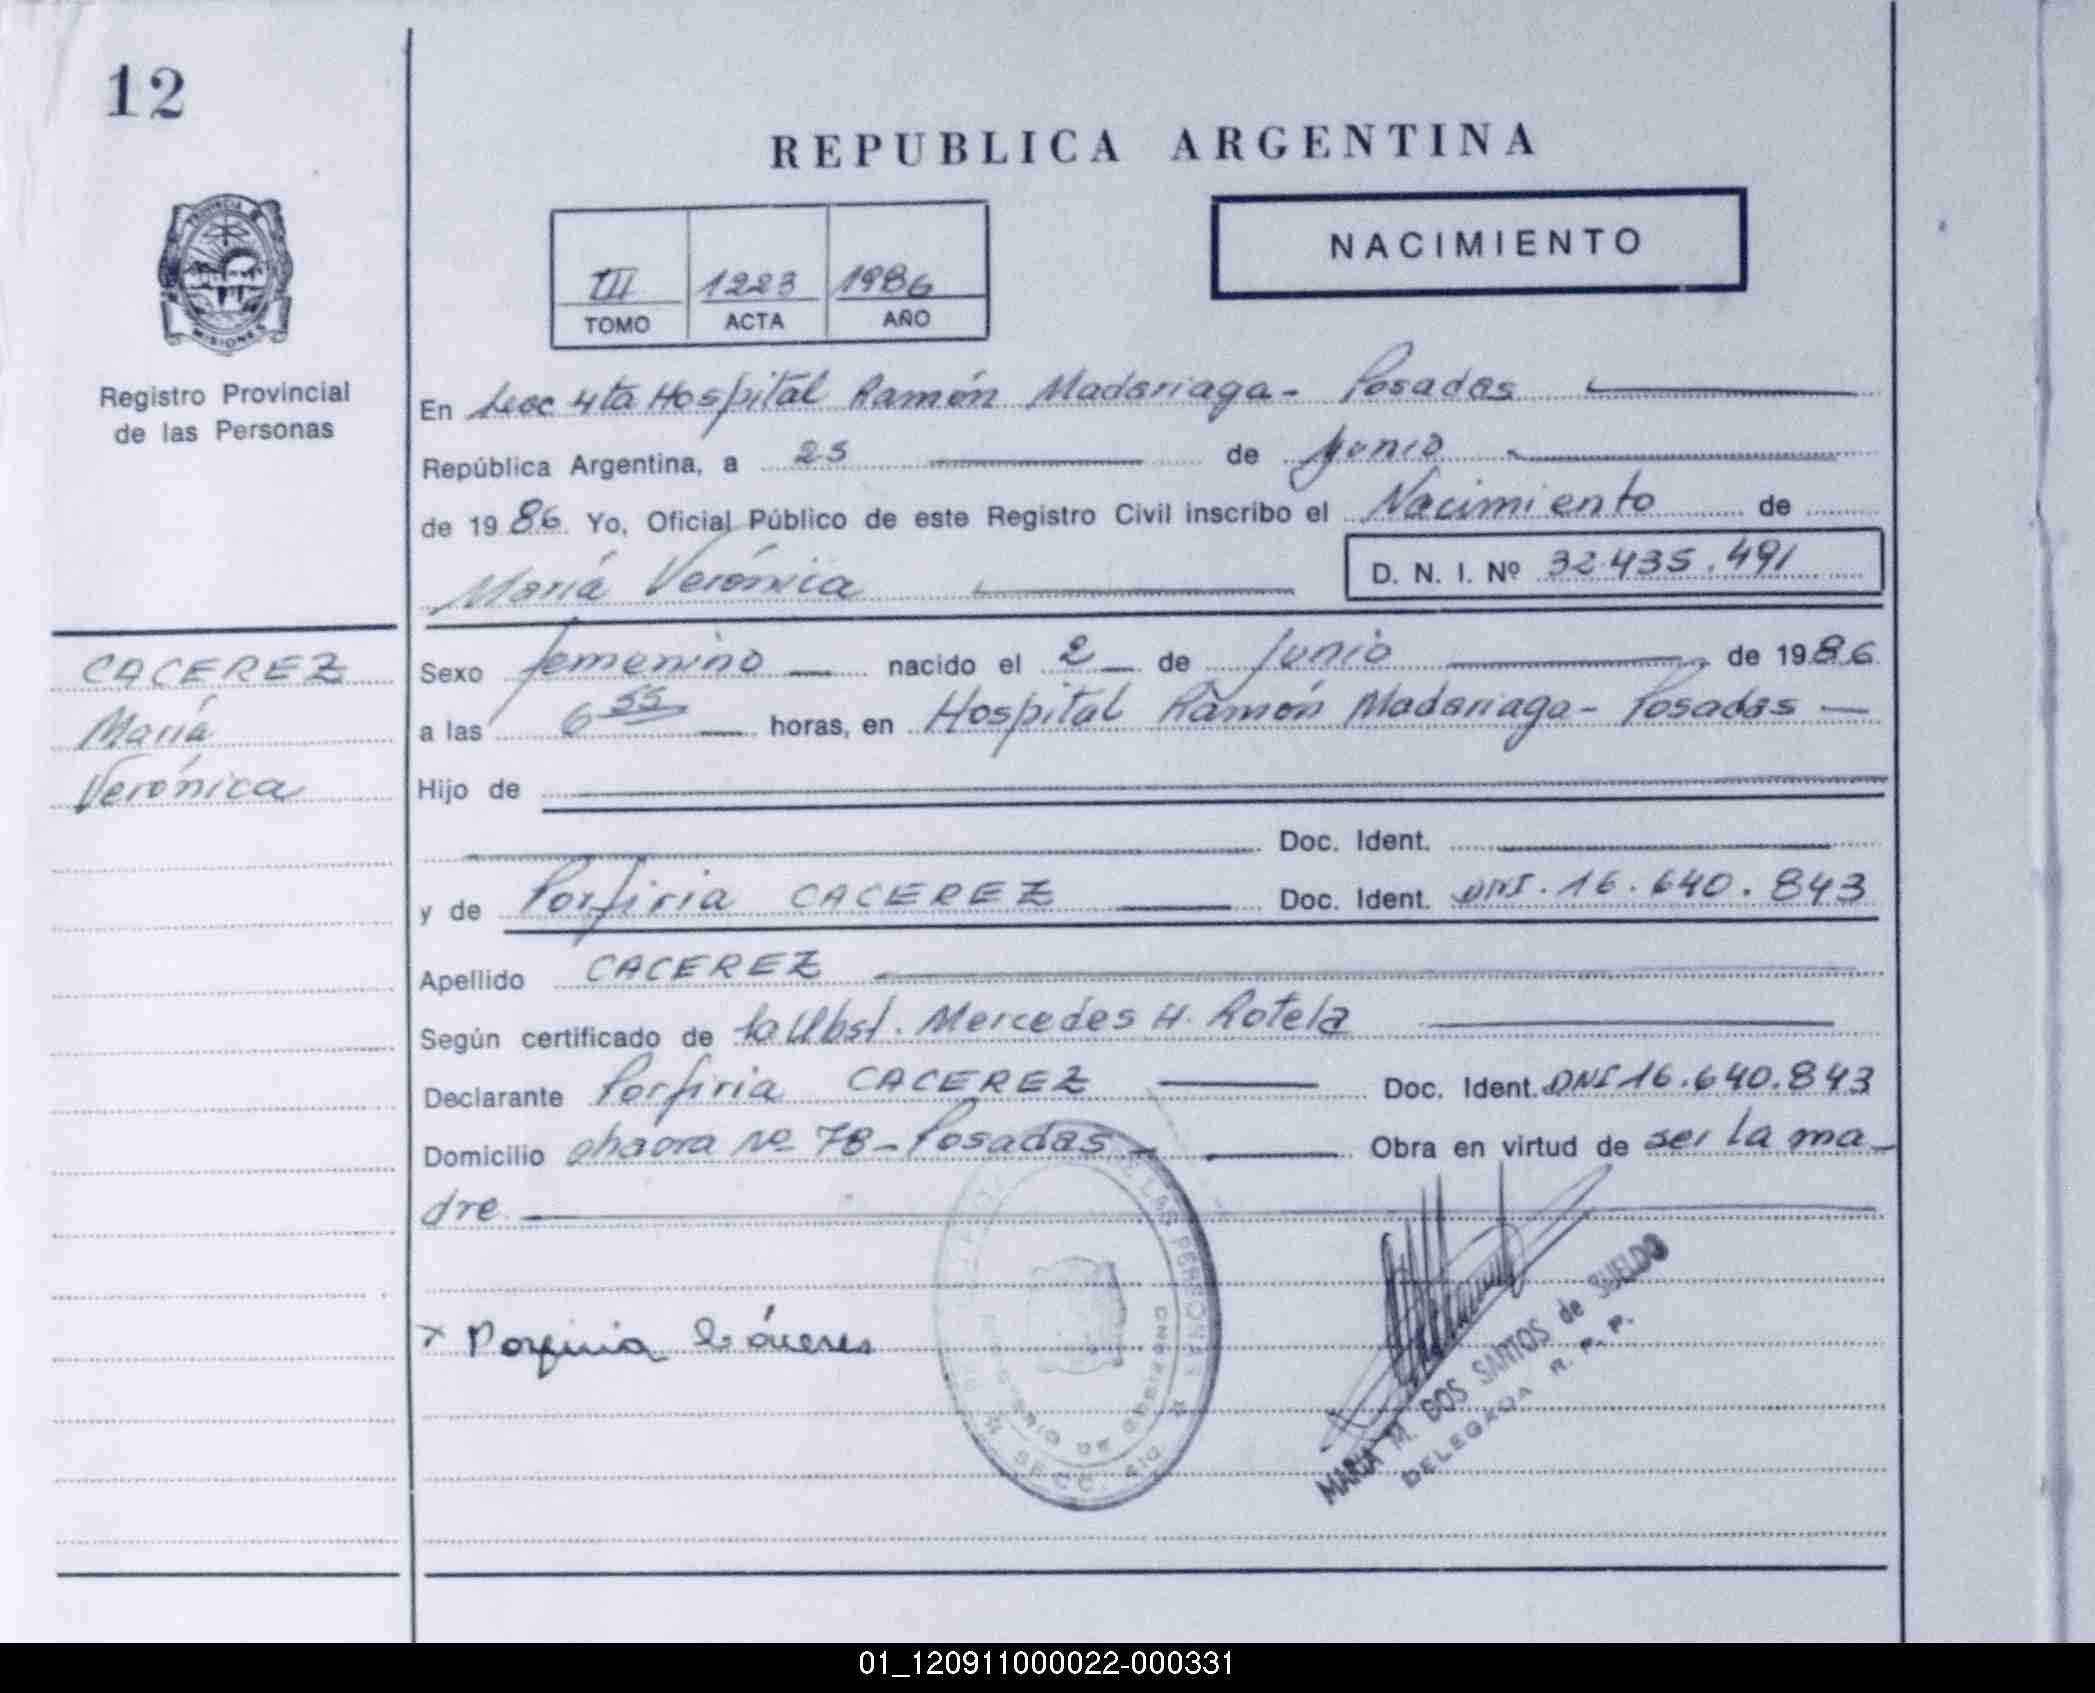 12
REPUBLICA ARGENTINA
NACIMIENTO
III 1223 1986
TOMO ACTA AÑO
PROVINCIA DE
MISIONES
Registro Provincial
de las Personas
En Secc 4ta Hospital Ramón Madariaga - Posadas
República Argentina, a 25 de Junio
de 1986. Yo, Oficial Público de este Registro Civil inscribo el Nacimiento de
María Verónica
D. N. I. Nº 32.435.491
CACEREZ
María
Verónica
Sexo femenino nacido el 2 de Junio de 1986
a las 6 55 horas, en Hospital Ramón Madariaga - Posadas
Hijo de
Doc. Ident.
y de Porfiria CACEREZ Doc. Ident. DNI. 16.640.843
Apellido CACEREZ
Según certificado de la Obst. Mercedes H. Rotela
Declarante Porfiria CACEREZ Doc. Ident. DNI 16.640.843
Domicilio chacra Nº 78 - Posadas - Obra en virtud de ser la ma-
dre
DE LAS PERSONAS
SECC.
x Porfiria Cáceres
MARIA M. DOS SANTOS de SUELDO
DELEGADA R. P. P.
01_120911000022-000331